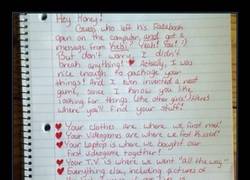 Hey Honey!
Guess who left his Facebook
open on the computer and got a
message from Yeah! You! :)
But don't worry, I didn't
break anything! ♥ Actually, I was
nice enough to package your
things! And I even invented a neat
game, since I know you like
looking for things like other girls'
you'll find your stuff!
♥ Your clothes are where we first met!
♥ Your videogames are where we first kissed!
♥ Your laptop is where we bought our
first videogame together!
♥ Your T.V. is where we went "all the way"!
♥ Everything else, including pictures of